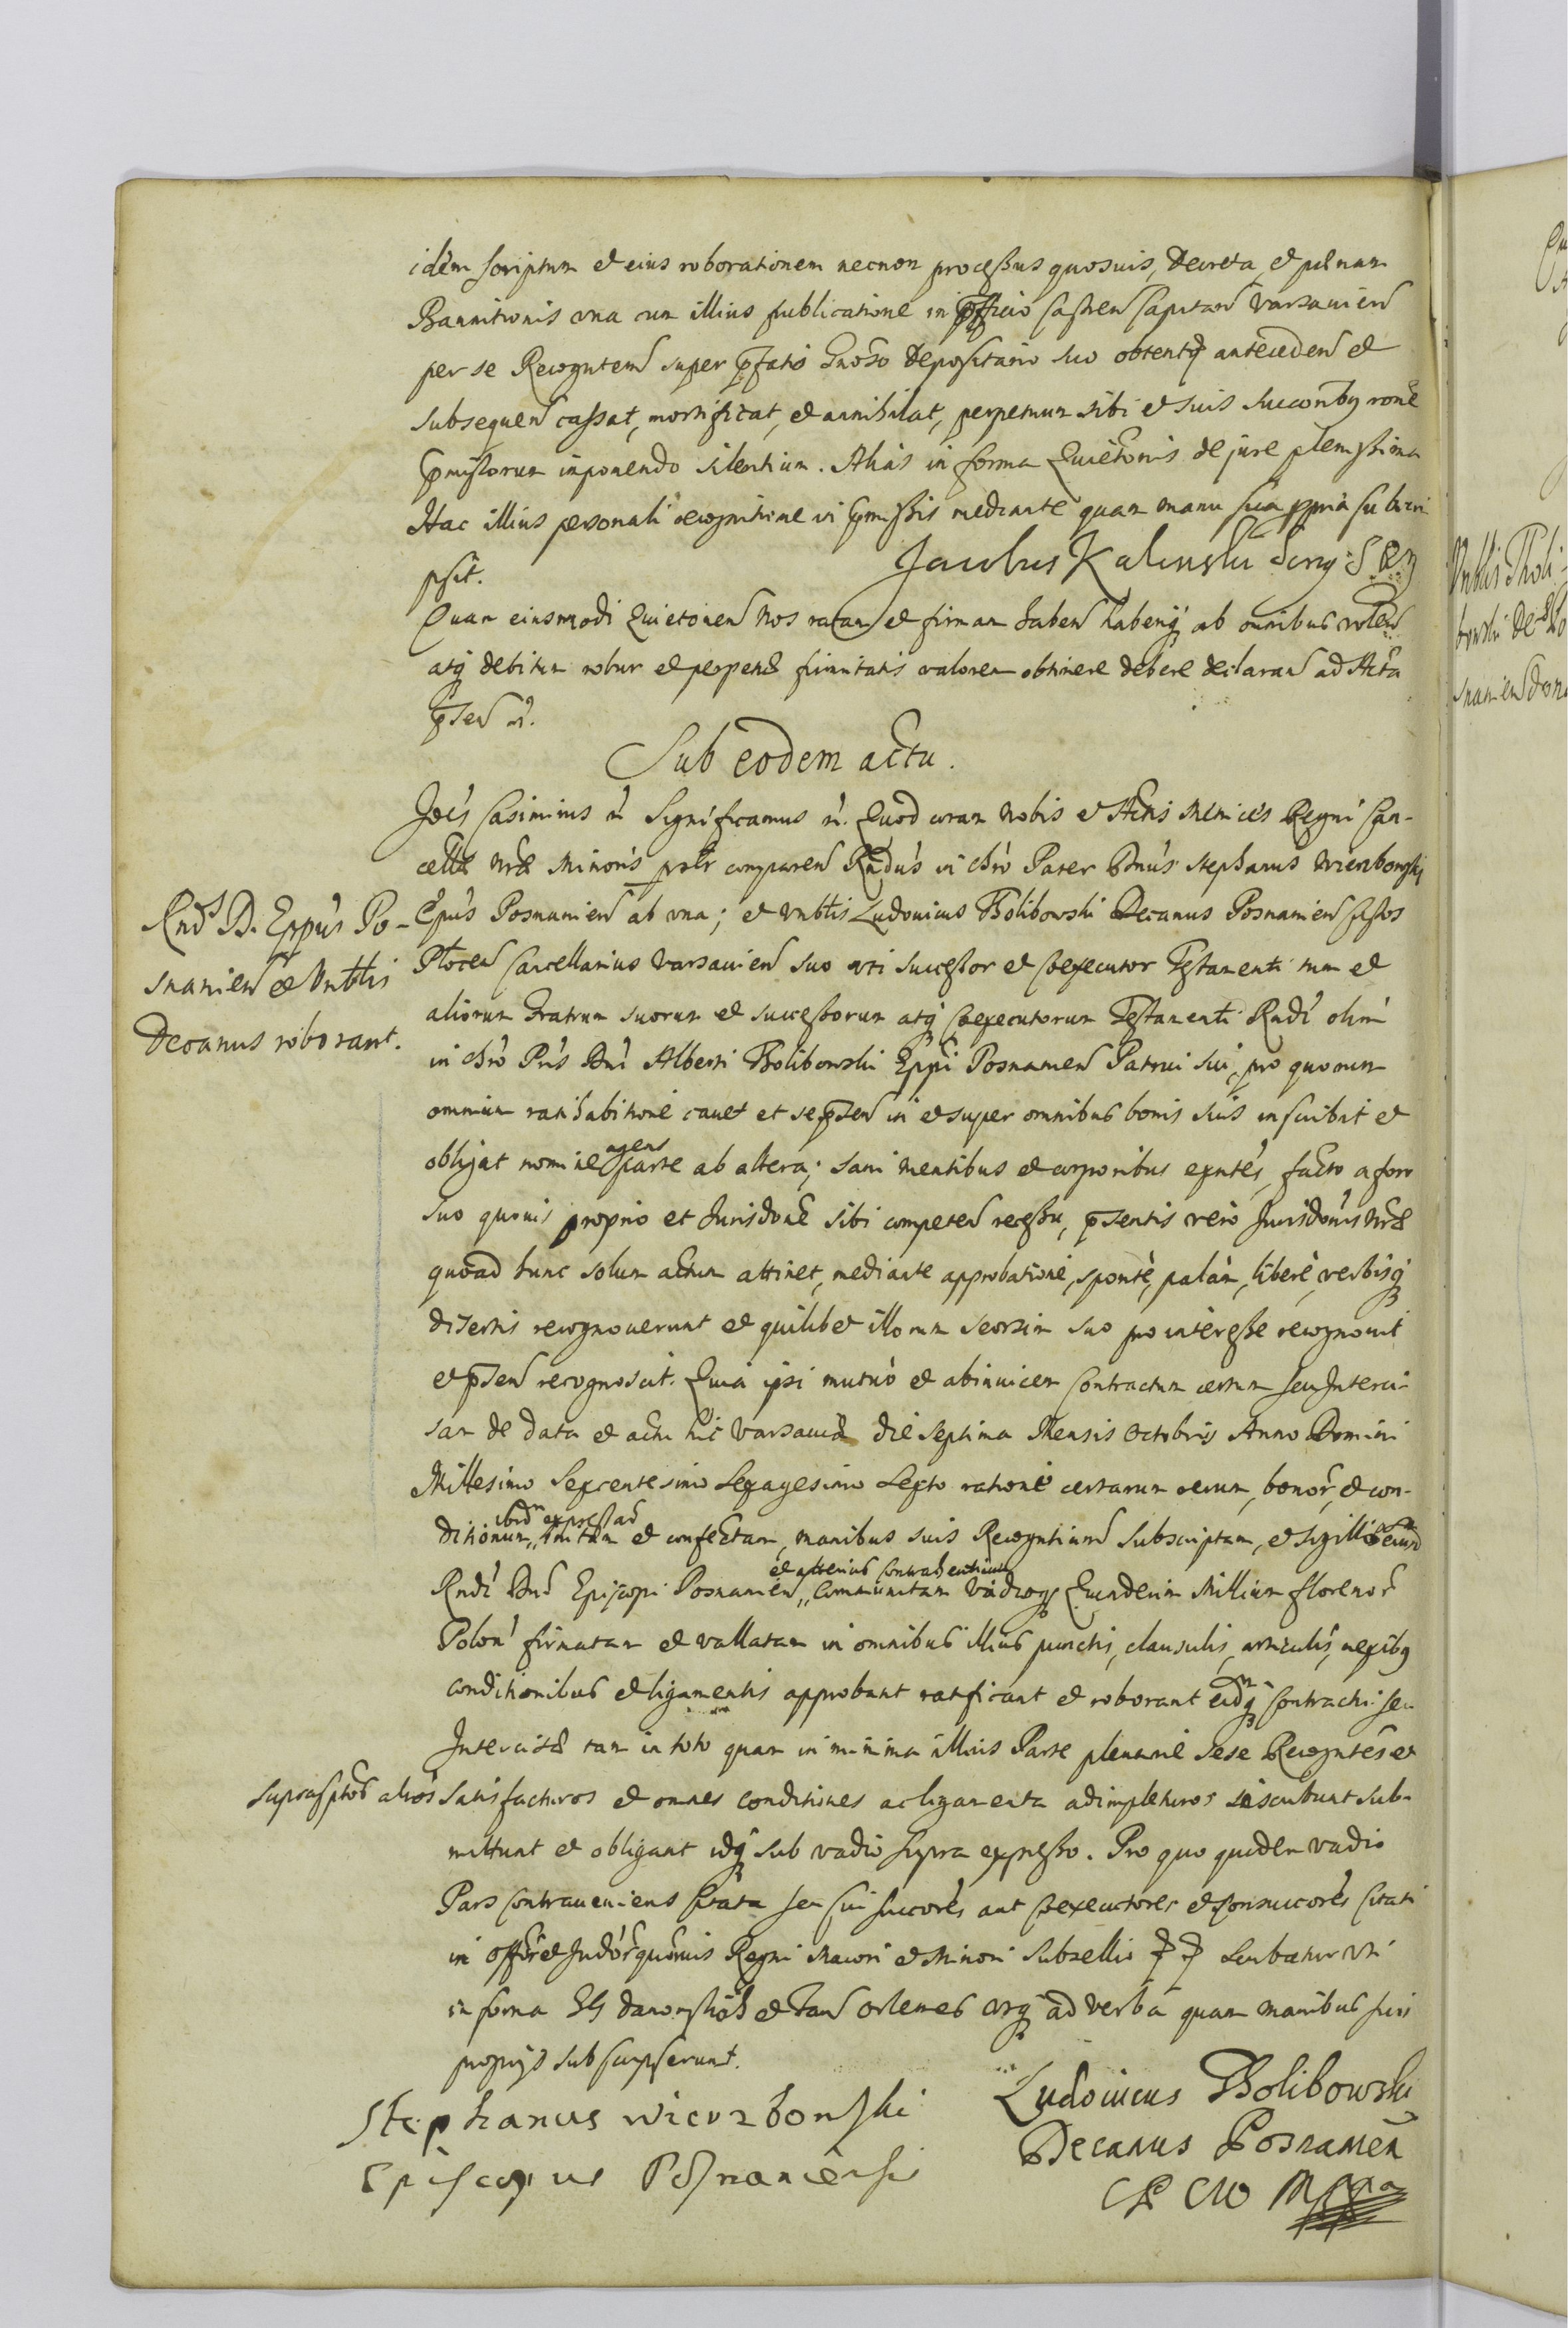 idem scriptum et eius roborationem necnon processus quosuis, Decreta, et pœnam
Bannitionis una cum illius publicatione in officio Castren Capitan Varsavien
per se Recognten super pfatis Gnoso Depositario suo obtentos antecedem et
subsequen cassat, mortificat, et annihilat, perpetuum sibi et suis succoribus rone
pmissorum imponendo silentium. Alias in forma Quietonis de jure plenissima
Hac illius personali recognitione in pmissis mediante quam manu sua ppria subscri
psit.
Jacobus Kalinski Serg S R M
Quam eiusmodi Quietonem Nos ratam et firmam haben haberiq ab omnibus volen
atq debitum robur et perpetuæ firmitatis valorem obtinere debere declaram ad Acta
psen
Sub eodem actu.
Joes Casimirus Significamus Quod coram Nobis et Actis Metrices Regni Can-
cellæ Nræ Minoris psolr comparen Rndus in Chro Pater Dnus Stephanus Wierzbowski
Epus Posnanien ab una; et Vnblis Ludovicus Tholibowski Decanus Posnanien
Plocen Cancellarius Varsavien suo uti successor et Coexecutor Testamenti tum et
aliorum Fratrum suorum et successorum atq Coexecutorum Testamenti Rndi olim
in Chro Pris Dni Alberti Tholibowski Eppi Posnanien Patrui sui, pro quorum
omnium ratihabitione cavet et se psen in et super omnibus bonis suis inscribit et
obligat nomine agens parte ab altera; sani mentibus et corporibus exntes, facto a foro
suo quovis proprio et Jurisdone sibi competen recessu, psentis vero Jurisdonis Nræ
quoad hunc solum actum attinet, mediante approbatione, sponte, palam, libere, verbisq
disertis recognoverunt et quilibet illorum seorsim suo pro interesse recognovit
et psen recognoscit. Quia ipsi mutuo et ab invicem Contractum certum seu Interci-
sam de data et actu hic Varsaviæ die septima Mensis Octobris Anno Domini
Millesimo Sexcentesimo Sexagesimo Sexto ratione certarum rerum, bonor, et con-
ditionum, ibidm expressar initam et confectam, manibus suis Recogntium subscriptam, et sigillis
Rndi Dni Episcopi Posnanien, et alterius contrahentium communitam vadioq Quindecim Millium florenor
Polon firmatam et vallatam in omnibus illius punctis, clausulis, articulis, nexibus
conditionibus et ligamentis approbant ratificant et roborant eidmq Contractui seu
Intercisæ tam in toto quam in minima illius Parte plenarie sese Recogntes et
suprascptos alios satisfacturos et omnes conditiones ac ligamenta adimpleturos inscribunt sub-
mittunt et obligant idq sub vadio supra expresso. Pro quo quidem vadio
Pars contraveniens citata seu sui succores aut Coexecutores et Consuccores citati
in Offo et Judo quovis Regni Maiori et Minori Subsellio
in forma et Tan Orlemes usq ad verba quam manibus suis
propriis subscripserunt.
Rnds D. Eppus Po-
snanien et Vnblis
Decanus roborant.
Stephanus Wierzbowski
Episcopus Posnaniensis
Ludovicus Tholibowski
Decanus Posnanien